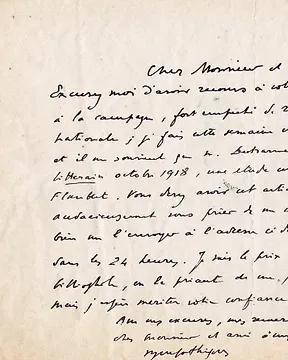 Cher Monsieur et
Excusez moi d'avoir recours à vot
à la campagne, fort empêché de
nationale ; j'y fais cette semaine
et il me souvient que M.
littéraire octobre 1918, une étude
Flaubert. Vous devez avoir cet arti
audacieusement vous prier de me
bien me l'envoyer à l'adresse ci d
dans les 24 heures. Je sais le prix
bibliophile, en le priant de
mais j'espère mériter votre confiance
Avec mes excuses, mes remer
cher Monsieur et ami à
sympathiques